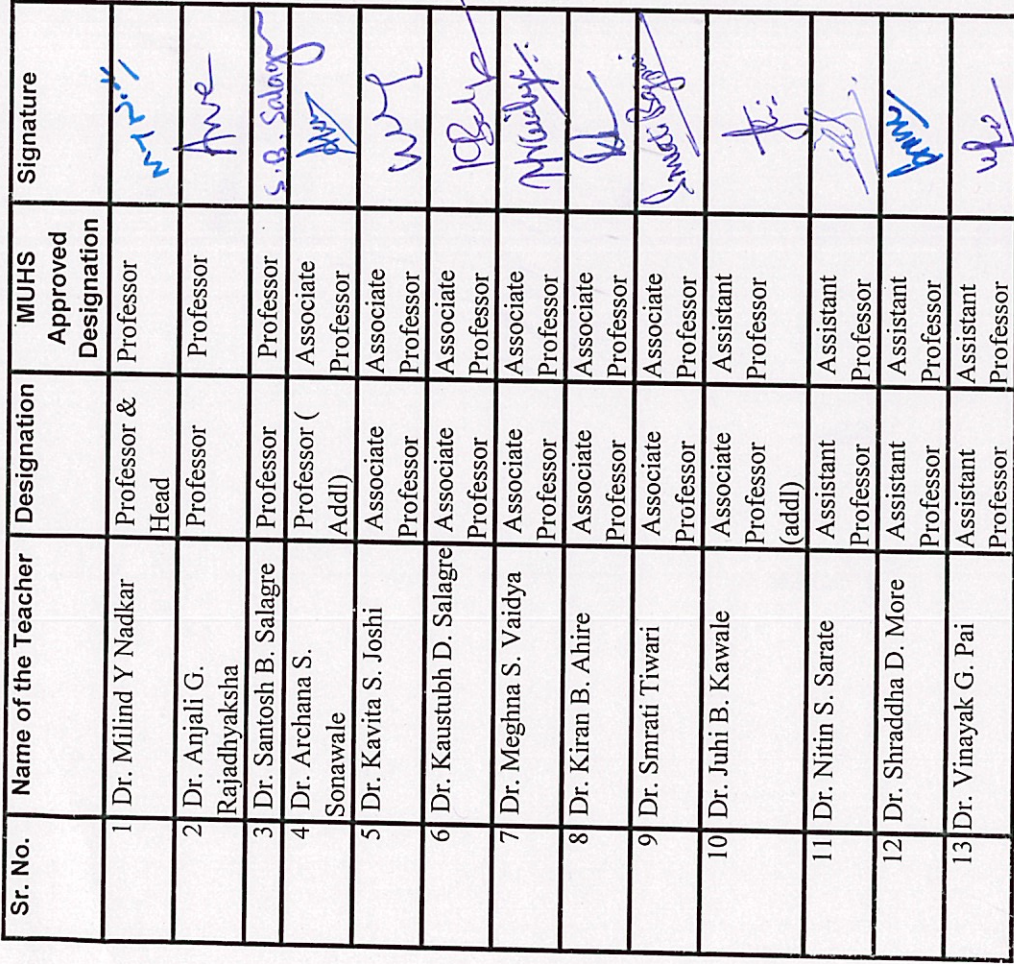 Sr. No. Name of the Teacher Designation MUHS Approved Designation Signature
1 Dr. Milind Y Nadkar Professor & Head Professor
2 Dr. Anjali G. Rajadhyaksha Professor Professor
3 Dr. Santosh B. Salagre Professor Professor S. B. Salagre
4 Dr. Archana S. Sonawale Professor ( Addl) Associate Professor
5 Dr. Kavita S. Joshi Associate Professor Associate Professor
6 Dr. Kaustubh D. Salagre Associate Professor Associate Professor
7 Dr. Meghna S. Vaidya Associate Professor Associate Professor
8 Dr. Kiran B. Ahire Associate Professor Associate Professor
9 Dr. Smrati Tiwari Associate Professor Associate Professor
10 Dr. Juhi B. Kawale Associate Professor (addl) Assistant Professor
11 Dr. Nitin S. Sarate Assistant Professor Assistant Professor
12 Dr. Shraddha D. More Assistant Professor Assistant Professor
13 Dr. Vinayak G. Pai Assistant Professor Assistant Professor